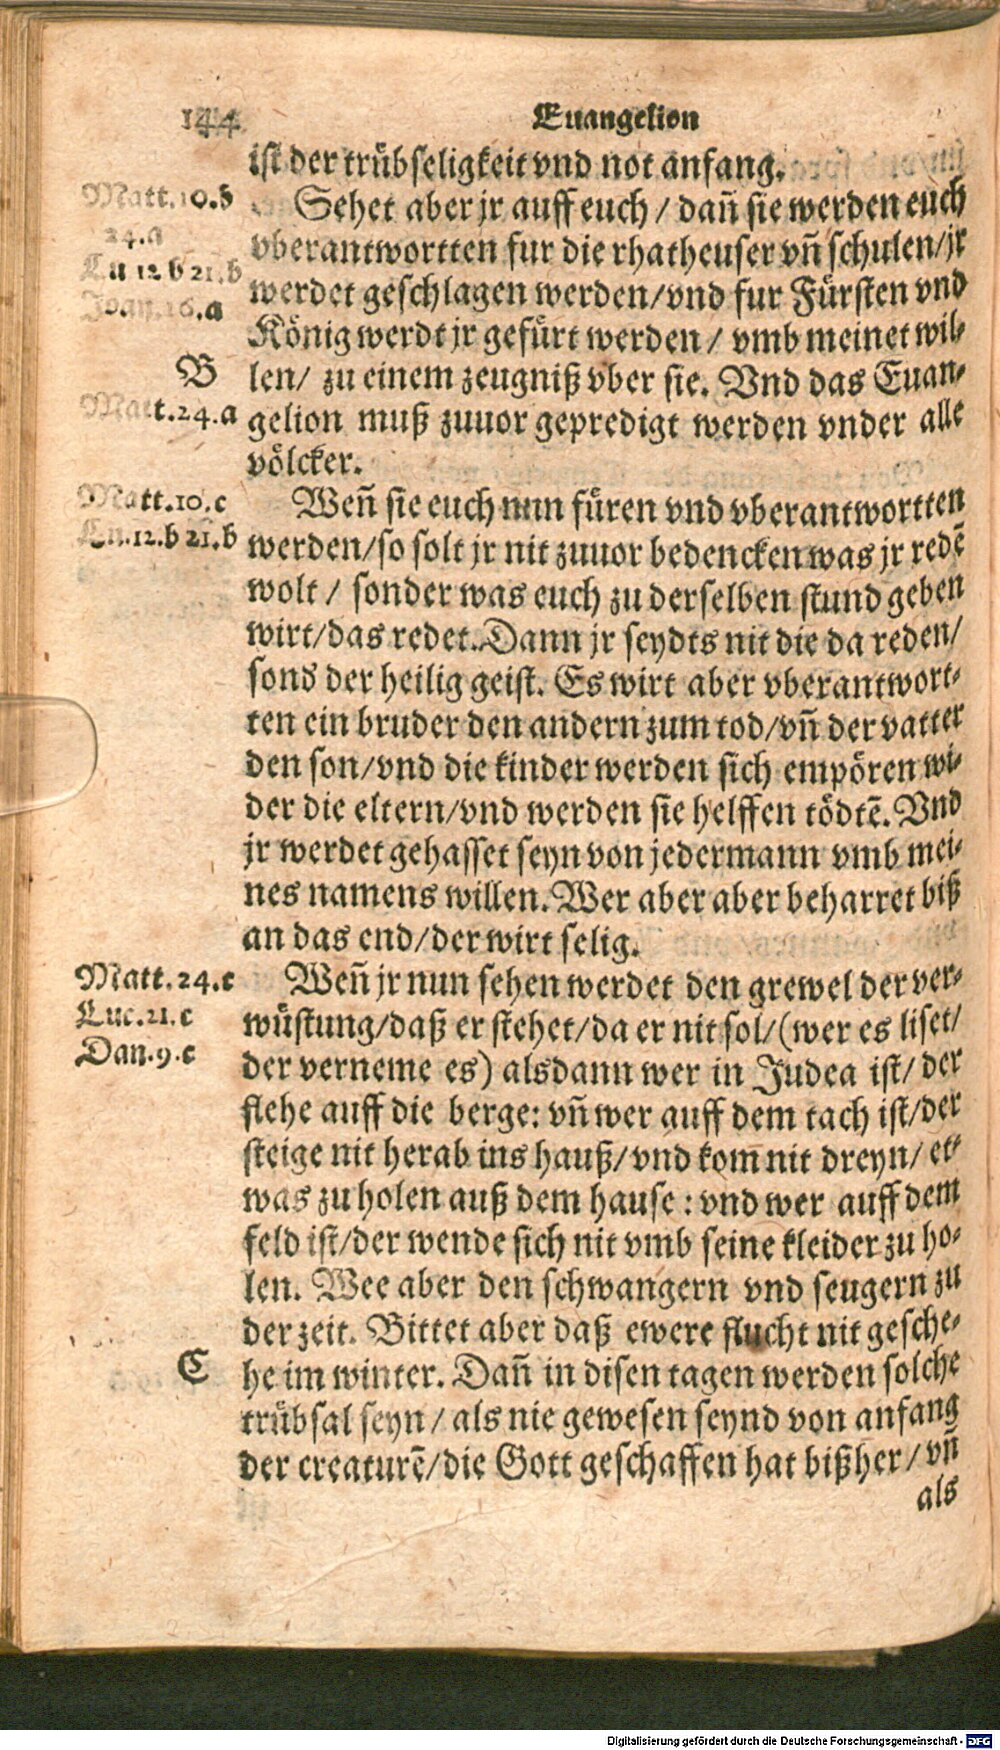 144 Euangelion
ist der trübseligkeit vnd not anfang.
Matt.10.b
24.a
Lu 12 b 21.b
Joan.16.a
Sehet aber jr auff euch / dañ sie werden euch
vberantwortten fur die rhatheuser vñ schulen/jr
werdet geschlagen werden/vnd fur Fürsten vnd
König werdt jr gefürt werden / vmb meinet wil-
B
Matt.24.a
len/ zu einem zeugniß vber sie. Vnd das Euan-
gelion muß zuuor gepredigt werden vnder alle
völcker.
Matt.10.c
Lu.12.b 21.b
Weñ sie euch nun füren vnd vberantwortten
werden/so solt jr nit zuuor bedencken was jr redẽ
wolt / sonder was euch zu derselben stund geben
wirt/das redet. Dann jr seydts nit die da reden/
sond der heilig geist. Es wirt aber vberantwort-
ten ein bruder den andern zum tod/vñ der vatter
den son/vnd die kinder werden sich empören wi-
der die eltern/vnd werden sie helffen tödtẽ. Vnd
jr werdet gehasset seyn von jedermann vmb mei-
nes namens willen. Wer aber aber beharret biß
an das end/der wirt selig.
Matt. 24.c
Luc.21.c
Dan.9.c
Weñ jr nun sehen werdet den grewel der ver-
wüstung/daß er stehet/da er nit sol/(wer es liset/
der verneme es) alsdann wer in Judea ist/ der
flehe auff die berge: vñ wer auff dem tach ist/der
steige nit herab ins hauß/vnd kom̃ nit dreyn/ et-
was zu holen auß dem hause : vnd wer auff dem
feld ist/der wende sich nit vmb seine kleider zu ho-
len. Wee aber den schwangern vnd seugern zu
der zeit. Bittet aber daß ewere flucht nit gesche-
C
he im winter. Dañ in disen tagen werden solche
trübsal seyn / als nie gewesen seynd von anfang
der creaturẽ/die Gott geschaffen hat bißher / vñ
als
Digitalisierung gefördert durch die Deutsche Forschungsgemeinschaft - DFG